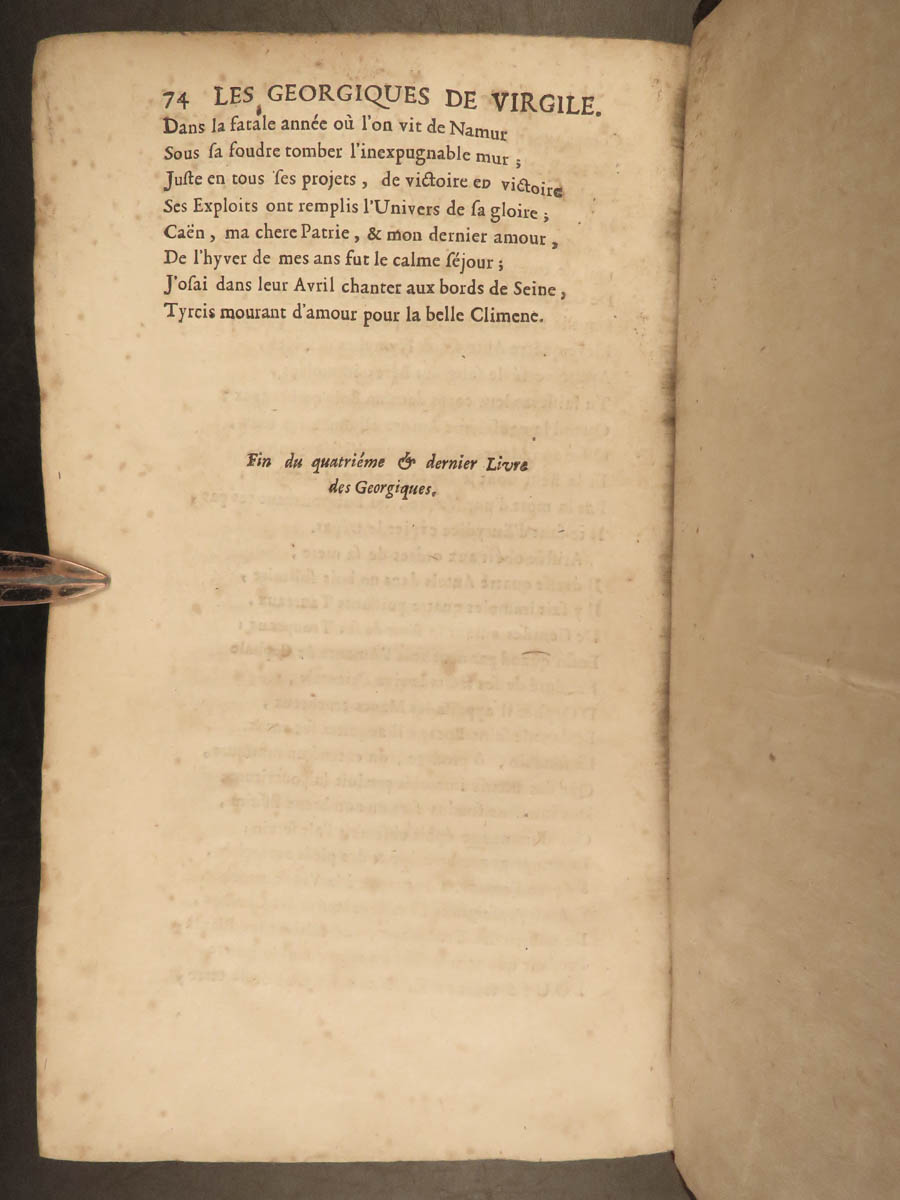 74 LES GEORGIQUES DE VIRGILE.
Dans la fatale année où l'on vit de Namur
Sous ſa foudre tomber l'inexpugnable mur ;
Juſte en tous ſes projets , de victoire en victoire
Ses Exploits ont remplis l'Univers de ſa gloire ;
Caën , ma chere Patrie , & mon dernier amour ,
De l'hyver de mes ans fut le calme ſéjour ;
J'oſai dans leur Avril chanter aux bords de Seine ,
Tyrcis mourant d'amour pour la belle Climene.
Fin du quatriéme & dernier Livre
des Georgiques.